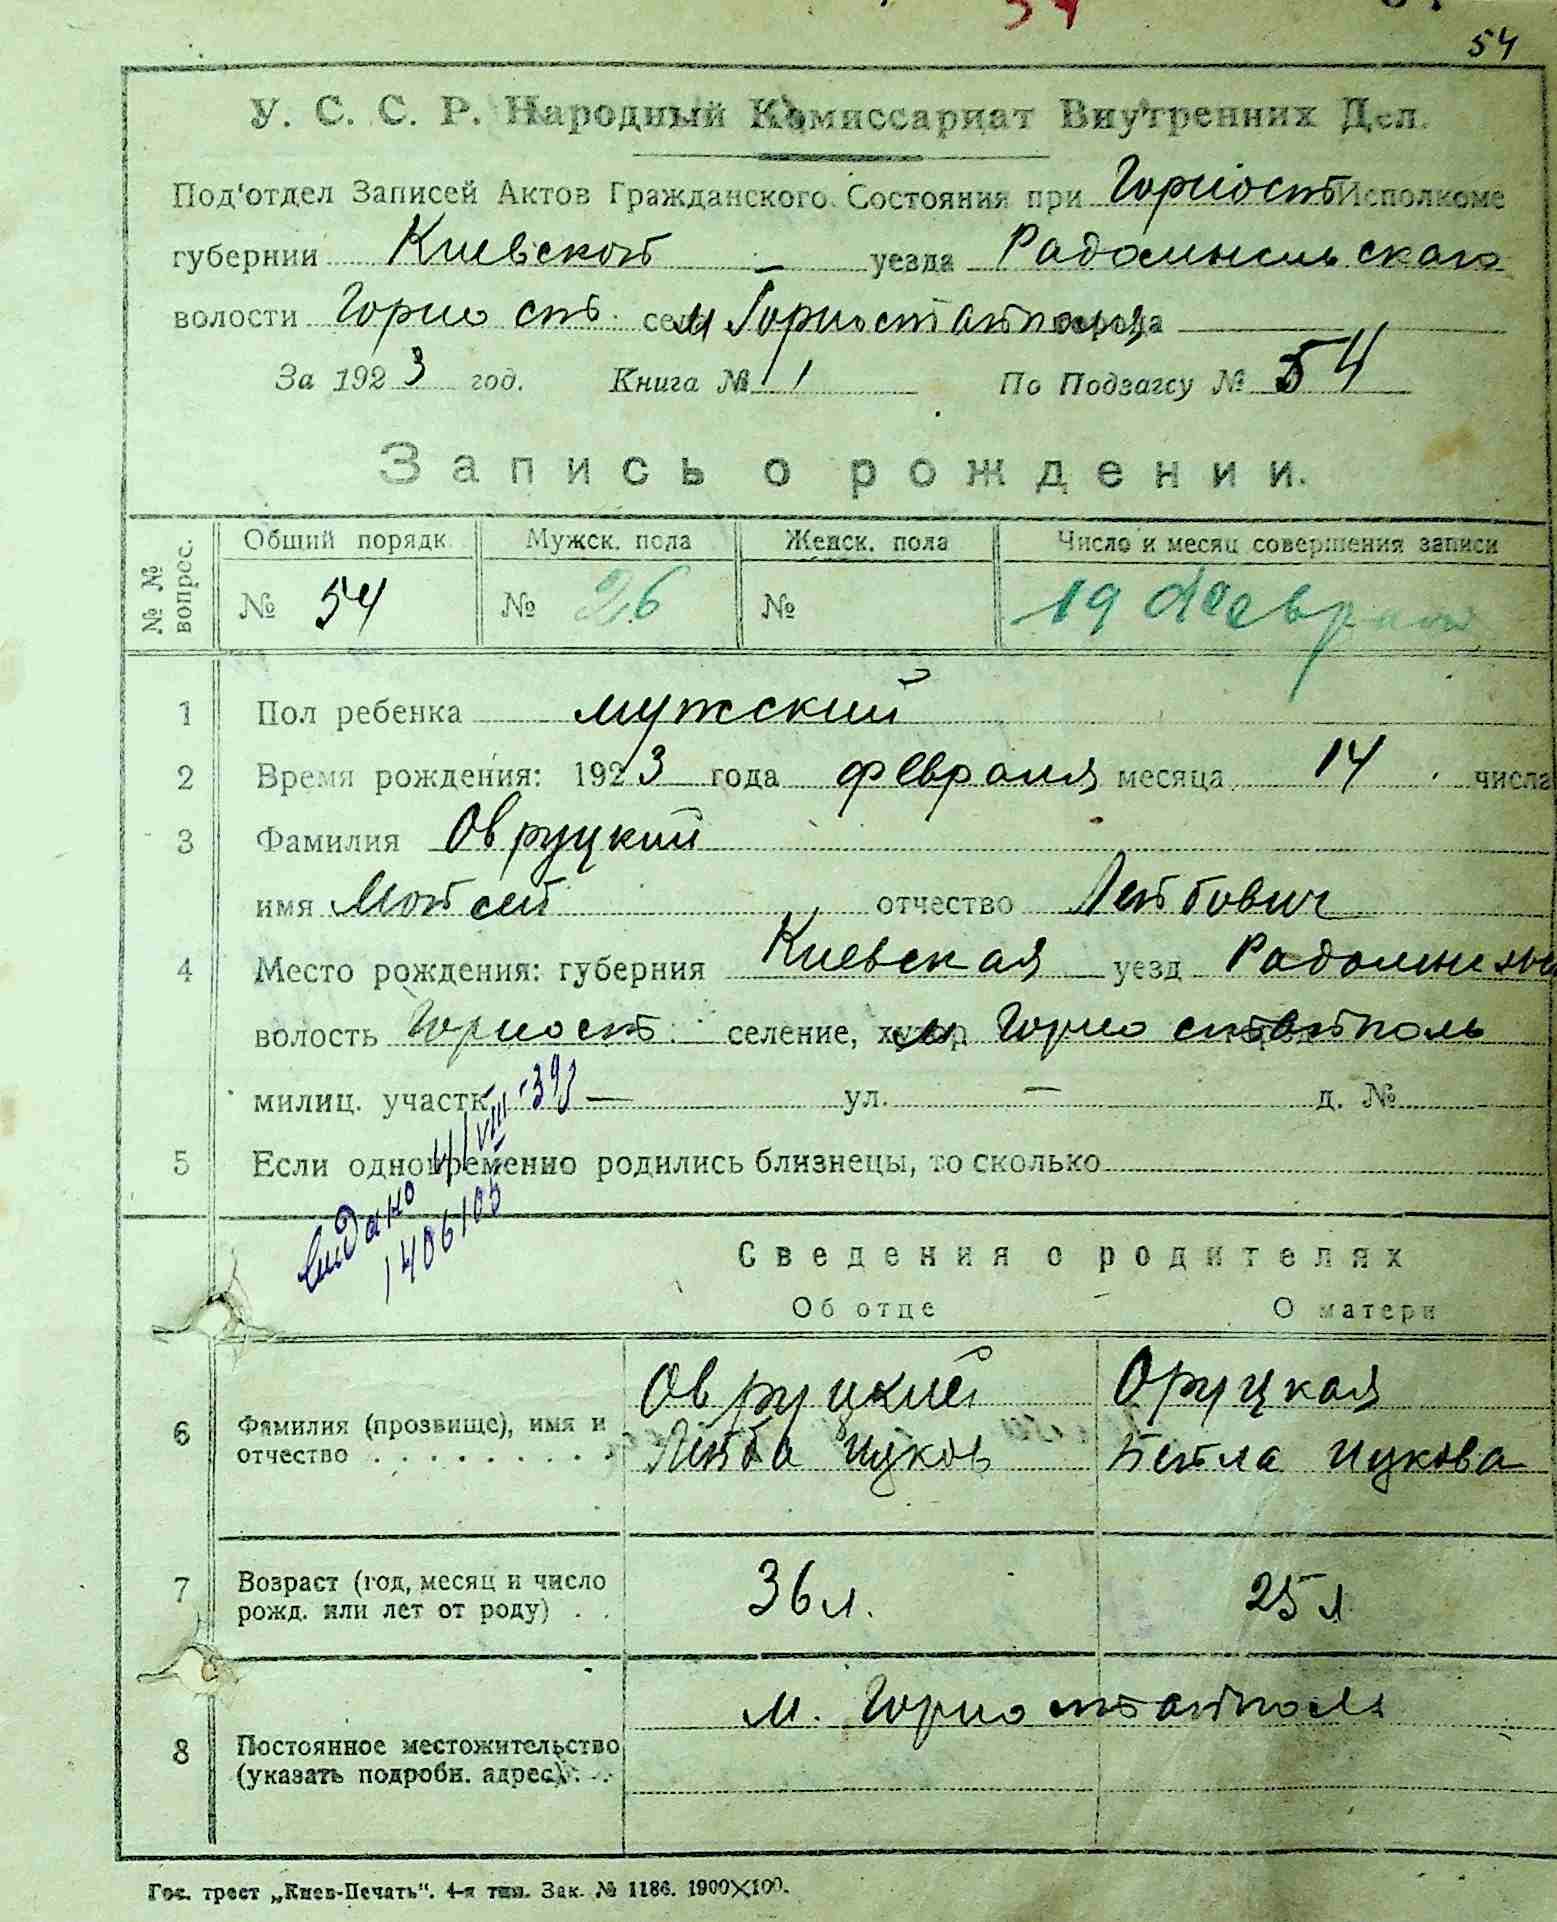 54
У. С. С. Р. Народный Комиссариат Внутренних Дел.
Под'отдел Записей Актов Гражданского Состояния при Горност Исполкоме
губернии Киевской уезда Радомысльскаго
волости Горност. село м Горностайполя города
За 1923 год. Книга № 1 По Подзагсу № 54
Запись о рождении.
№ № вопрос. Общий порядк. Мужск. пола Женск. пола Число и месяц совершения записи
№ 54 № 26 № 19 Февраля
1 Пол ребенка мужский
2 Время рождения: 1923 года февраля месяца 14 числа
3 Фамилия Овруцкий
имя Мойсей отчество Лейбович
4 Место рождения: губерния Киевская уезд Радомысльс
волость Горност. селение, хутор м Горностайполь
милиц. участк. — ул. — д. №
5 Если одновременно родились близнецы, то сколько
Видано 4/VIII-39
1406105
Сведения о родителях
Об отце О матери
6 Фамилия (прозвище), имя и отчество Овруцкий Оруцкая
Лейба Ицков Бейла Ицкова
7 Возраст (год, месяц и число рожд. или лет от роду) 36 л. 25 л
8 Постоянное местожительство (указать подробн. адрес) м. Горностайполь
Гос. трест „Киев-Печать“. 4-я тип. Зак. № 1186. 1900×100.